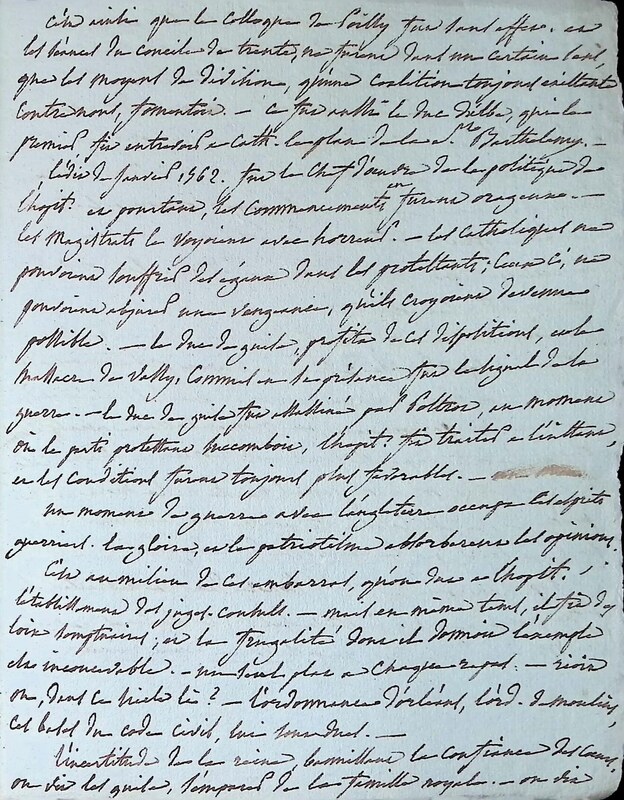 c'est ainsi que le colloque de Poissy fut sans effet. et
les séances du concile de trente, ne furent dans un certain sens,
que les moyens de division, qu'une coalition toujours existante
contre nous, fomentoit. — ce fut aussi le duc d'Albe, qui le
premier fit entrevoir a Cath. le plan de la St. Barthelemy. —
L'édit de Janvier 1562. fut le chef d'œuvre de la politique de
l'hopit. et pourtant, les commencements en furent orageux. —
les Magistrats le voyoient avec horreur. — les Catholiques ne
pouvoient souffrir des égaux dans les protestants; ceux ci, ne
pouvoient abjurer une vengeance, qu'ils croyoient devenue
possible. — le duc de guise, profita de ces dispositions, et le
Massacre de Vassy, commis en sa présence fut le signal de la
guerre. — le duc de guise fut assassiné par Poltrot, au moment
où le parti protestant succomboit, l'hopit. fit traiter a l'instant,
et les conditions furent toujours plus favorables. —
un moment de guerre avec l'angleterre occupa les esprits
guerriers. la gloire, et le patriotisme absorberent les opinions.
C'est au milieu de ces embarras, qu'on dut a l'hopit.
l'établissement des juges-consuls. — mais en même tems, il fit des
loix somptuaires; et la frugalité dont il donnoit l'exemple
est inconcevable. — un seul plat a chaque repas. —
on, dans ce siecle là? — l'ordonnance d'orléans, l'ord. de moulins,
ces bases du code civil, lui sont dues. —
L'incertitude de la reine, bannissant la confiance des cœurs,
on vit les guise, s'emparer de la famille royale. — on vit